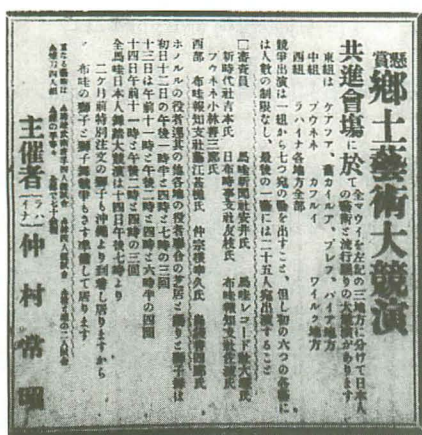 懸賞
郷土藝術大競演
共進會塲に於て
全マウイを左記の三地方に分けて日本人
の藝術と流行踊りの大競演があります
東組は ケアフア、舊カイルア、プレフ、パイア地方
中組 プウネネ カフルイ ワイルク地方
西組 ラハイナ各地方全部
競爭出演は一組から七つ宛の藝を出すこと、但し初の六つの各藝に
は人數の制限なし、最後の一藝には二十五人宛出演すること
審査員 馬哇新聞社安井氏 馬哇レコード社大澤氏
新時代社吉本氏 日布時事社友枝氏 布哇報知支社佐藤氏
プウネネ小林善三郎氏
西部 布哇報知支社 氏 仲宗根幸久氏
ホノルルの役者連其の他各地の役者聯合の芝居と踊りと獅子舞は
初日十二日の午後一時半と四時と七時の三囘
十三日は午前十一時と午後二時と四時と六時半の四囘
十四日午前十一時と午後二時と四時の三囘
全馬哇日本人舞踏大競演は十四日午後七時より
二ケ月前特別注文の獅子も沖縄より到着し居りますから
布哇の獅子と獅子舞競爭もさす準備して居ります
主催者 ラハイナ 仲村常